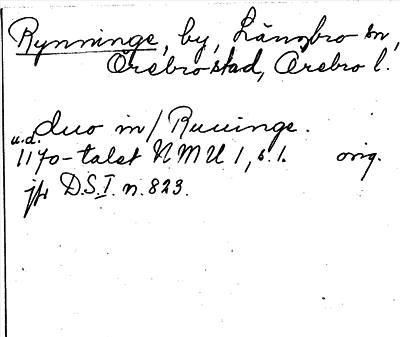 Rynninge, by, Längbro sn,
Örebro stad, Örebro l.
duo in / Ruuinge.
u.d.
1170-talet NMU 1, s. 1. orig.
jfr D.S. I. n. 823.